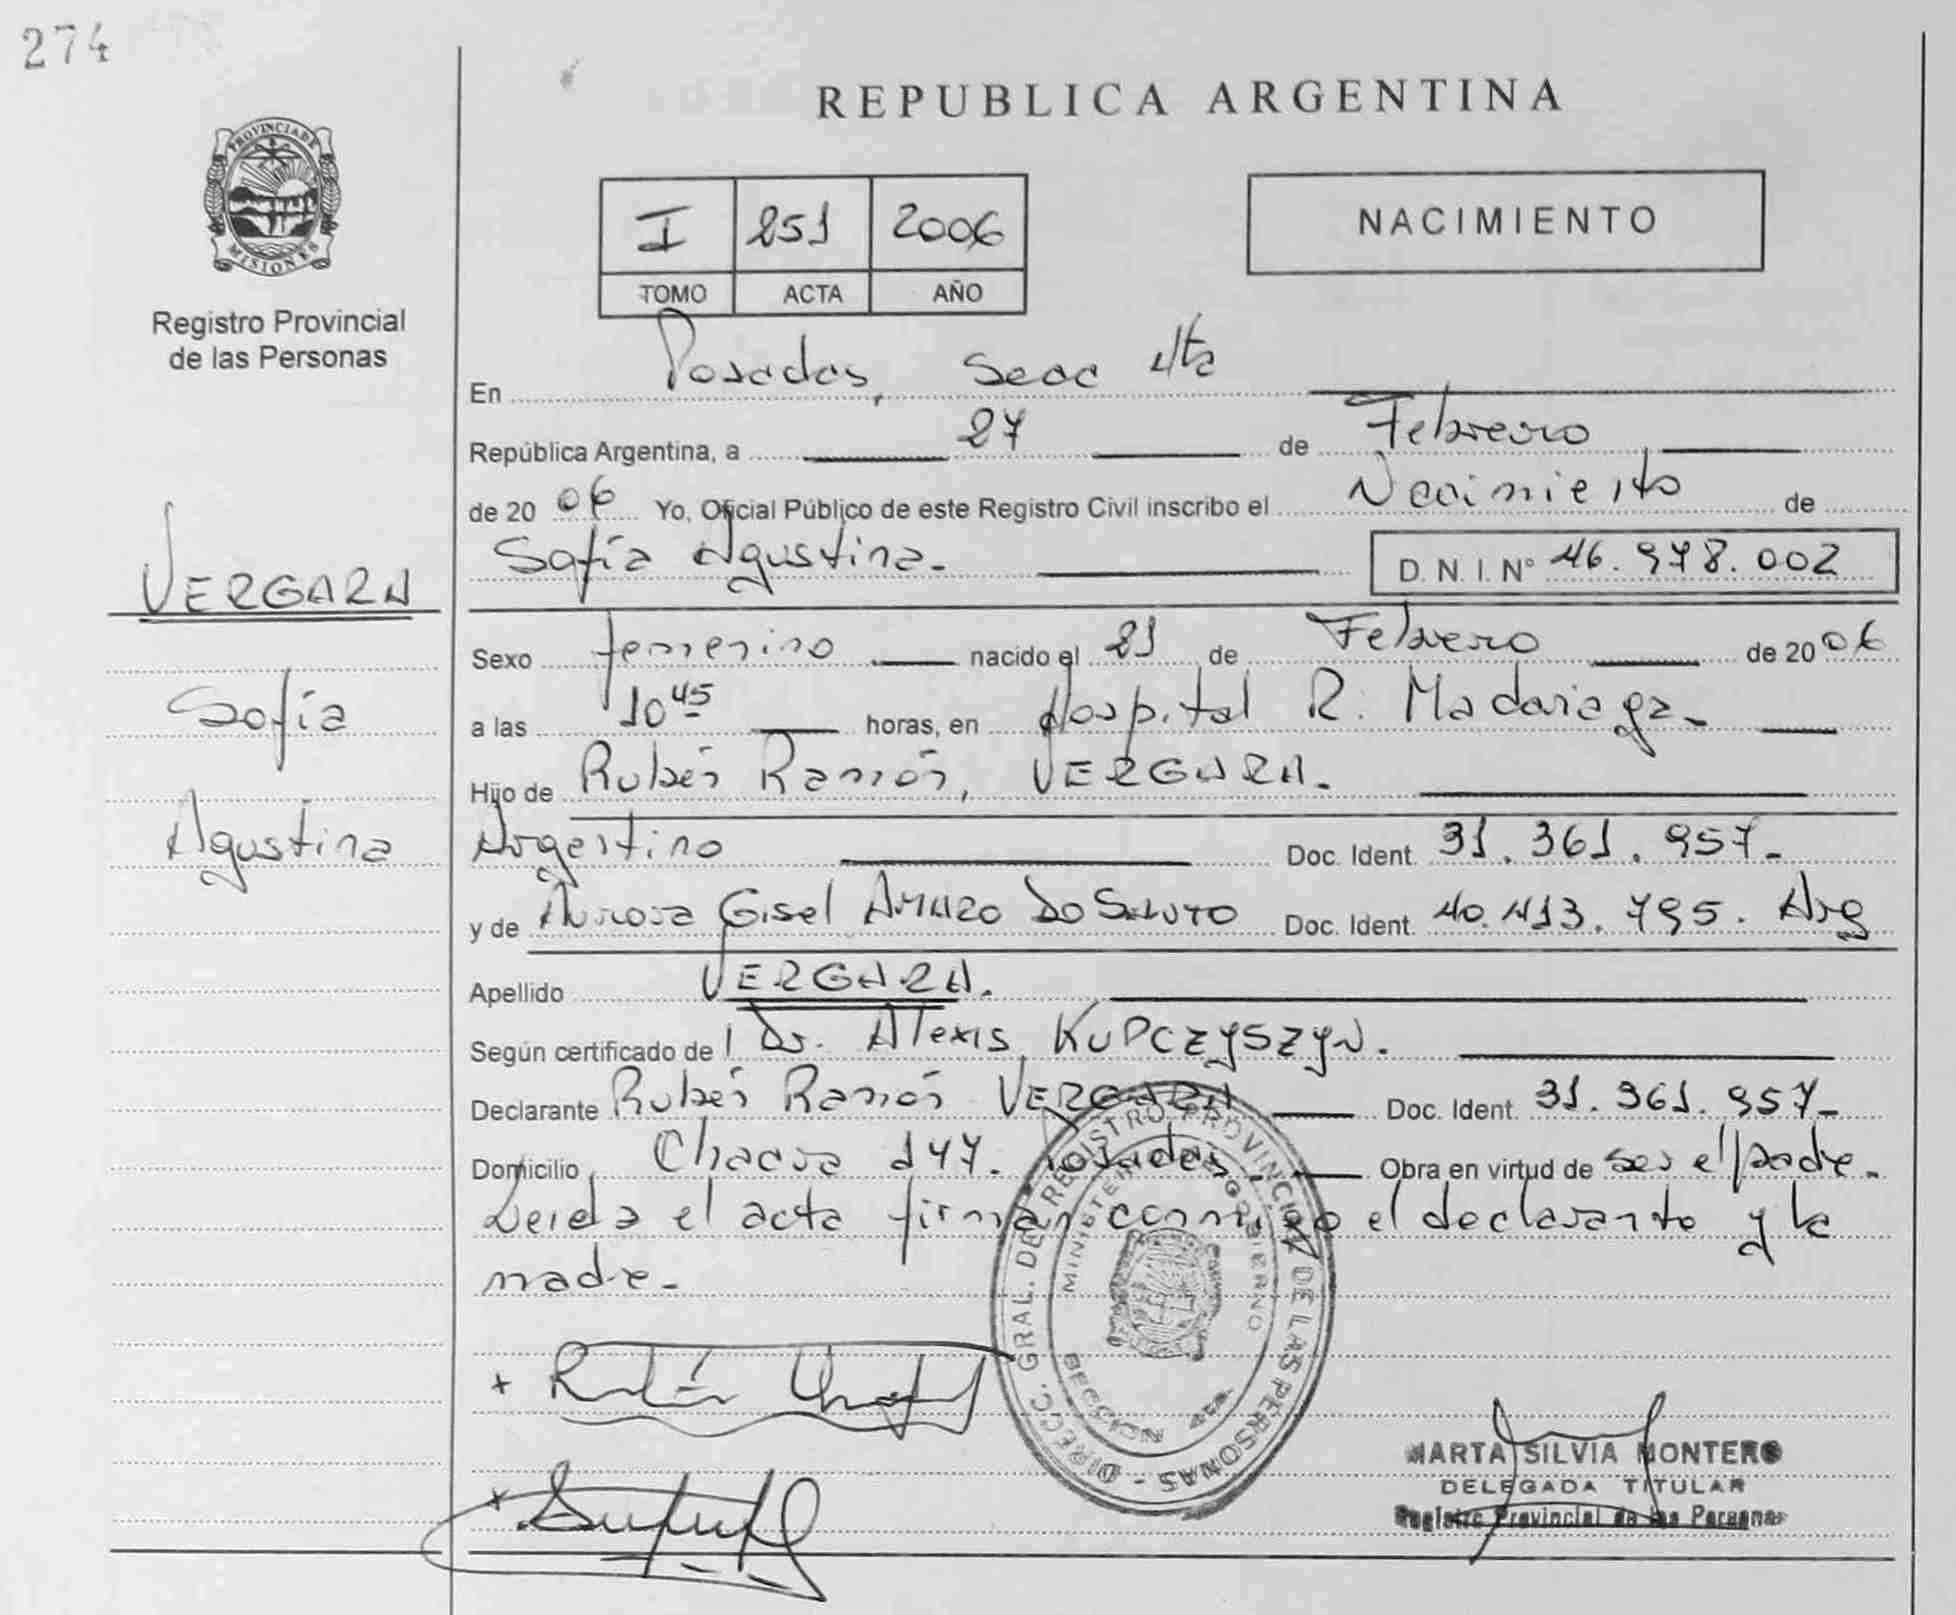 274
REPUBLICA ARGENTINA
PROVINCIA DE MISIONES
Registro Provincial
de las Personas
I 251 2006
TOMO ACTA AÑO
NACIMIENTO
En Posadas, Secc 4ta
República Argentina, a 27 de Febrero
de 2006 Yo, Oficial Público de este Registro Civil inscribo el Nacimiento de
Sofía Agustina. D. N. I. Nº 46.978.002
VERGARA
Sofía
Agustina
Sexo femenino nacido el 21 de Febrero de 2006
a las 10 45 horas, en Hospital R. Madariaga.
Hijo de Rubén Ramón, VERGARA.
Argentino Doc. Ident. 31.361.957.
y de Aurora Gisel Doc. Ident. 40.413.795. Arg
Apellido VERGARA.
Según certificado de Dr. Alexis KUPCZYSZYN.
Declarante Rubén Ramón VERGARA Doc. Ident. 31.361.957.
Domicilio Chacra 147. Posadas. Obra en virtud de ser el padre.
Leida el acta firman conmigo el declarante y la
madre.
DIRECC. GRAL. DEL REGISTRO PROVINCIAL DE LAS PERSONAS
MINISTERIO GOBIERNO
SECCION 4ta
MARTA SILVIA MONTERO
DELEGADA TITULAR
Registro Provincial de las Personas